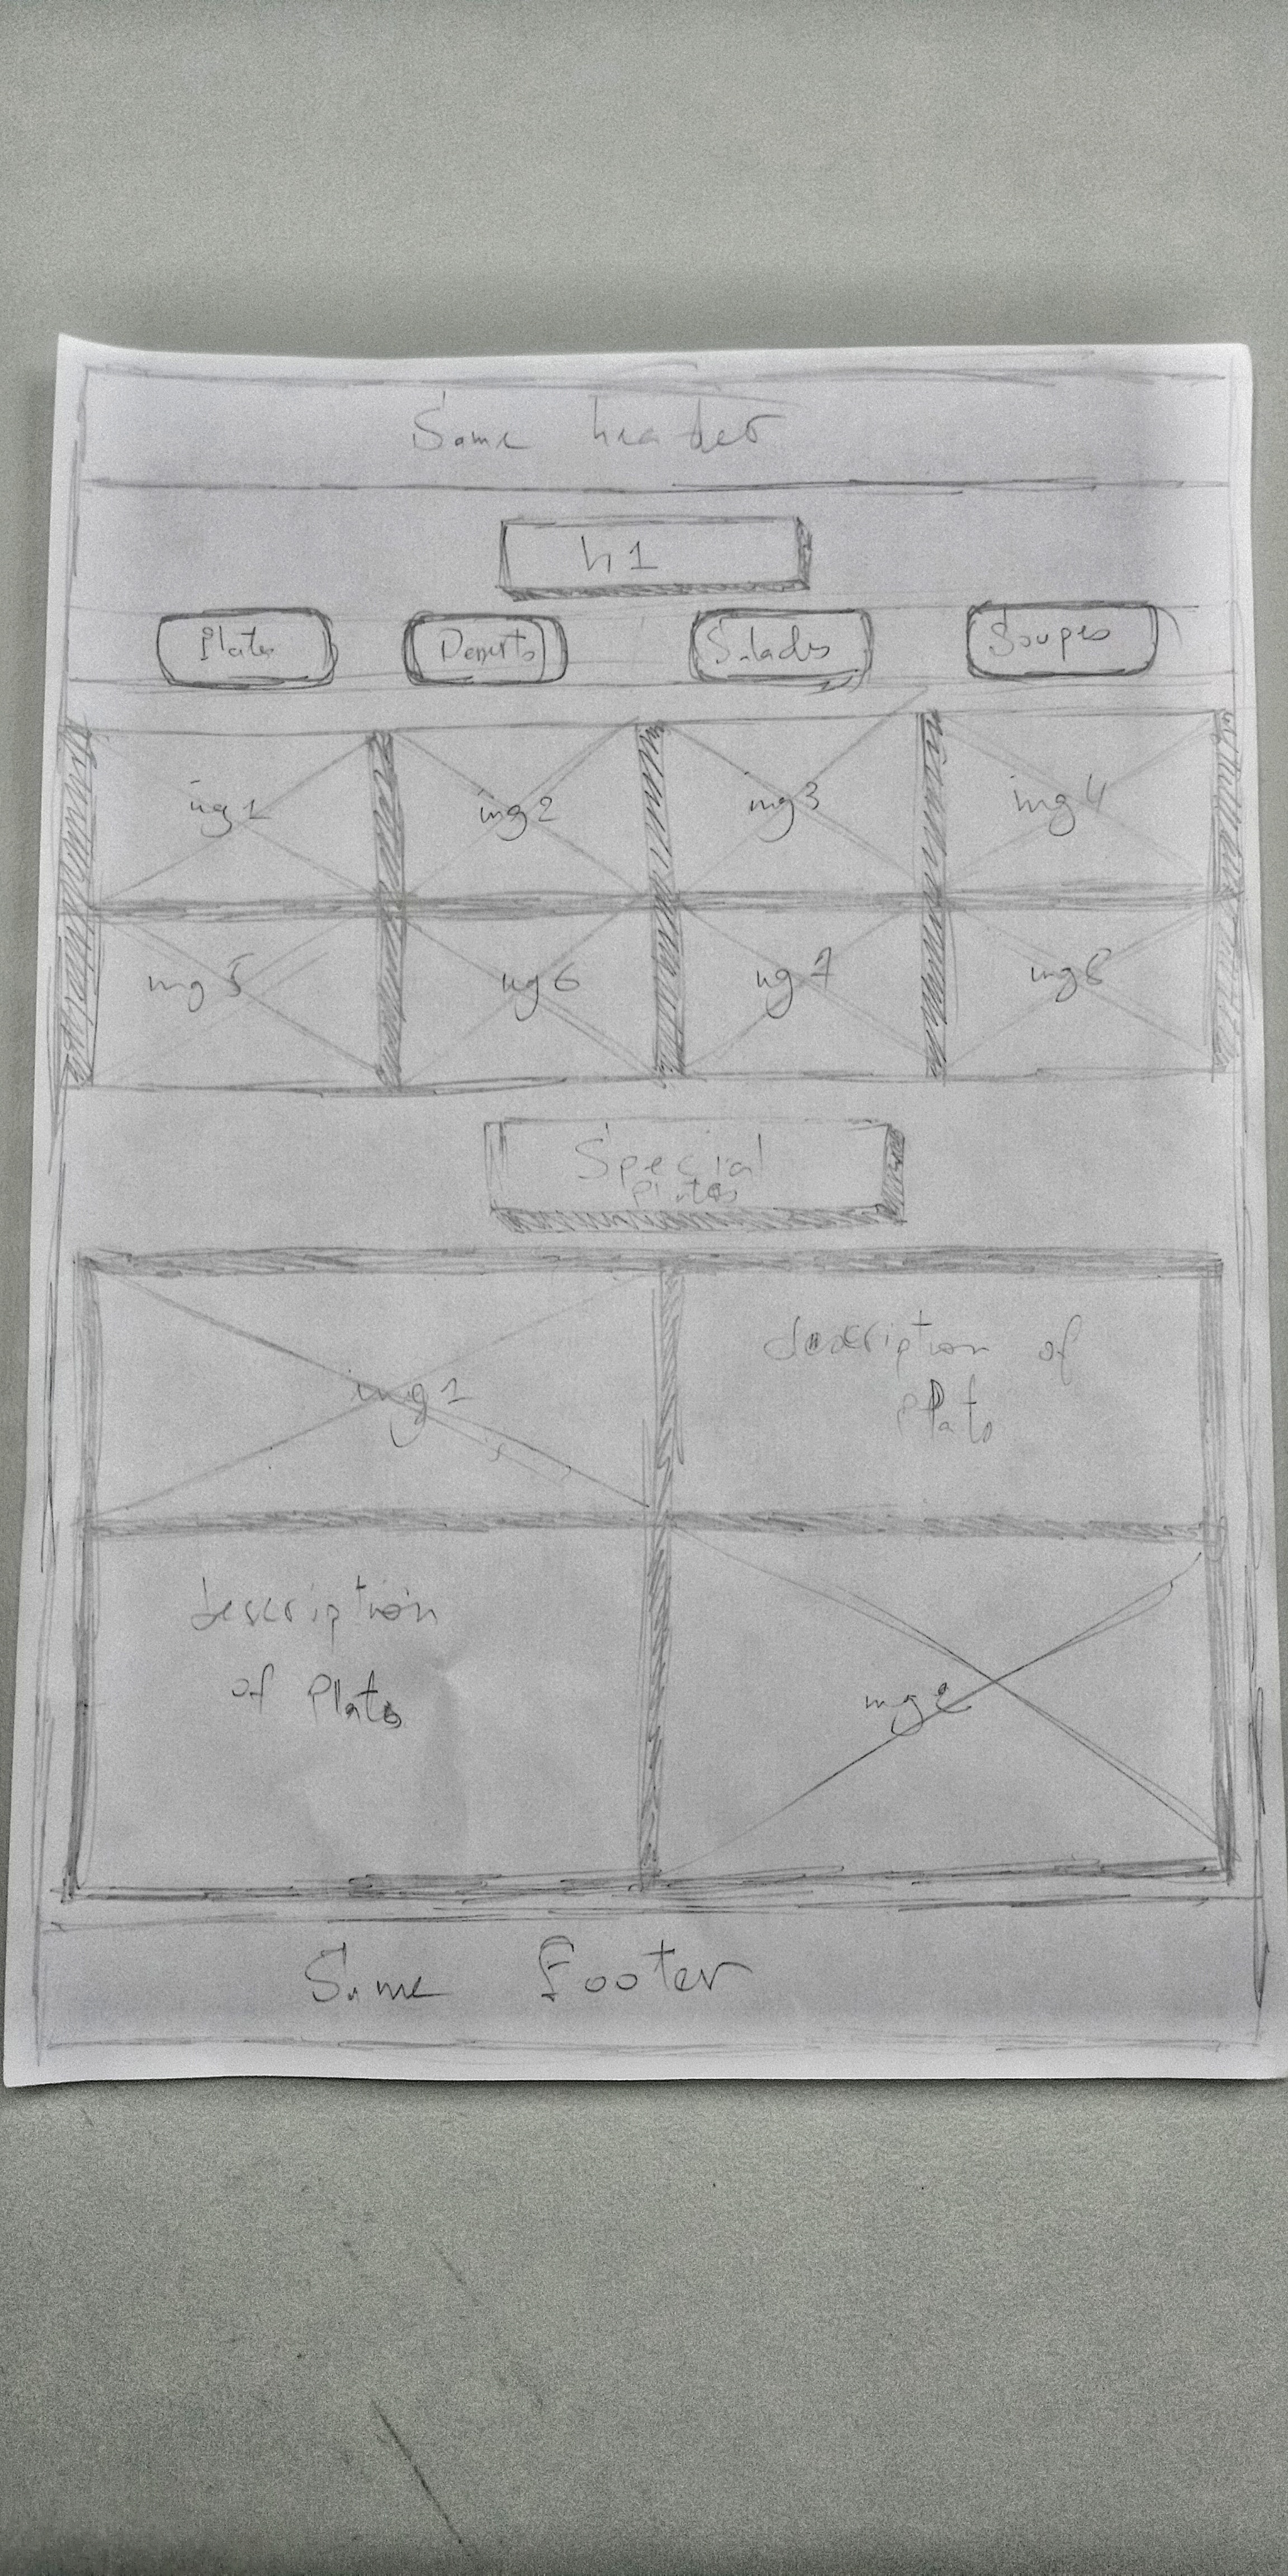 Same header
h1
Plats
Desserts
Salades
Soupes
img 1
img 2
img 3
img 4
img 5
img 6
img 7
img 8
Special
plats
img 1
description of
Plats
description
of Plats
img 2
Same Footer